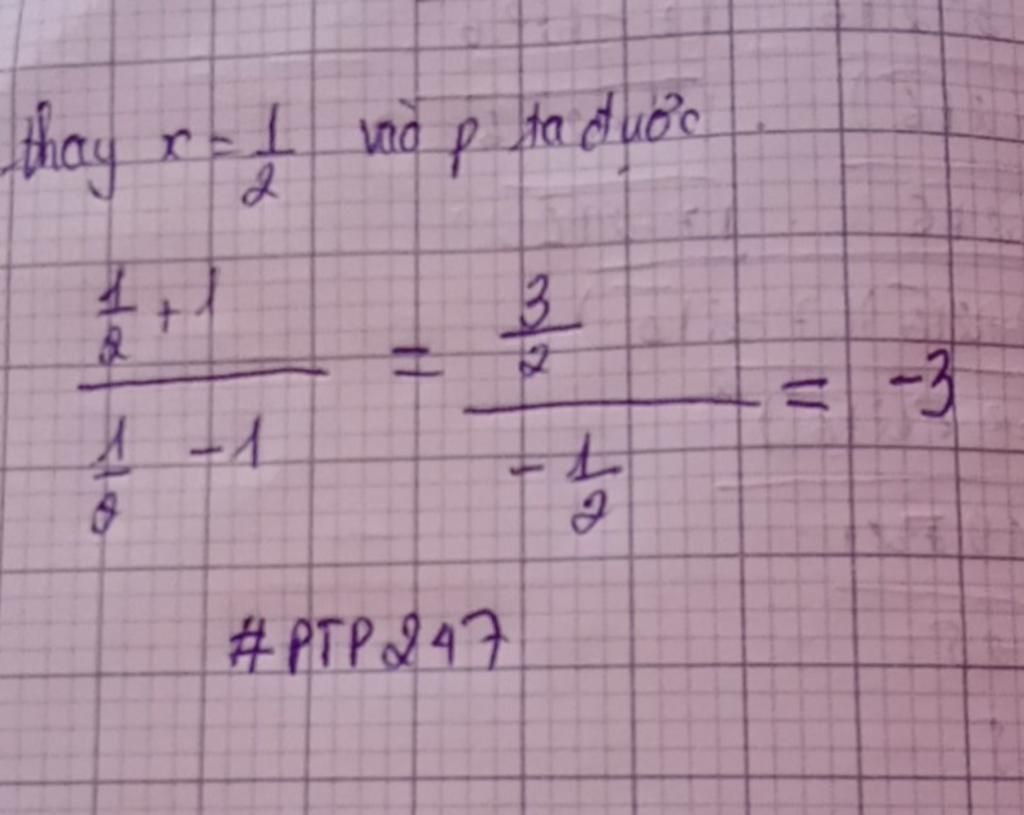 thay x = 1/2 vào p ta được
(1/2 + 1)/(1/2 - 1) = (3/2)/(-1/2) = -3
#PTP247